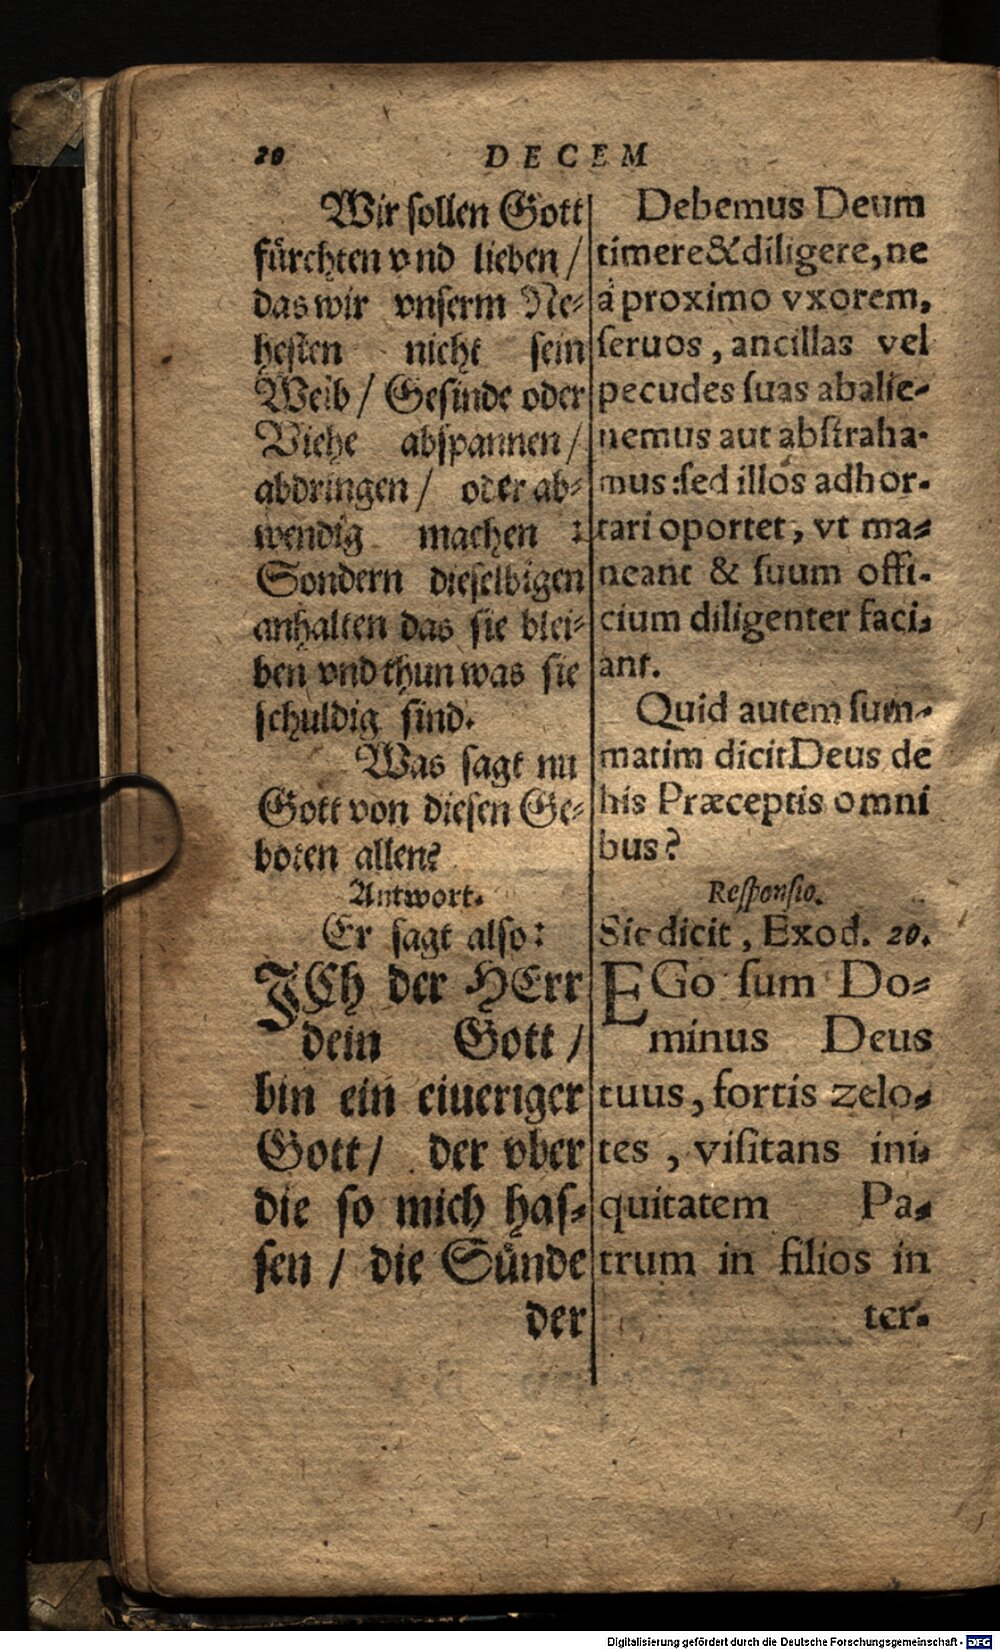 20 DECEM
Wir sollen Gott
fürchten vnd lieben /
das wir vnserm Ne-
hesten nicht sein
Weib / Gesinde oder
Viehe abspannen /
abdringen / oder ab-
wendig machen :
Sondern dieselbigen
anhalten das sie blei-
ben vnd thun was sie
schuldig sind.
Was sagt nu
Gott von diesen Ge-
boten allen?
Antwort.
Er sagt also:
ICh der HErr
dein Gott /
bin ein eiueriger
Gott / der vber
die so mich has-
sen / die Sünde
der
Debemus Deum
timere & diligere, ne
à proximo vxorem,
ſeruos, ancillas vel
pecudes ſuas abalie-
nemus aut abſtraha-
mus: ſed illos adhor-
tari oportet, vt ma-
neant & ſuum offi-
cium diligenter faci-
ant.
Quid autem ſum-
matim dicit Deus de
his Præceptis omni
bus?
Reſponſio.
Sic dicit, Exod. 20.
EGo ſum Do-
minus Deus
tuus, fortis zelo-
tes, viſitans ini-
quitatem Pa-
trum in filios in
ter-
Digitalisierung gefördert durch die Deutsche Forschungsgemeinschaft - DFG